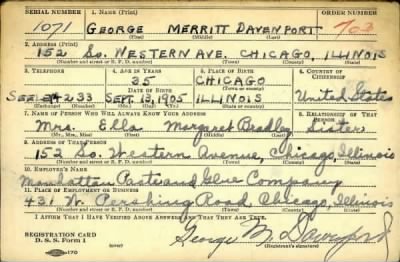 SERIAL NUMBER 1. NAME (Print) ORDER NUMBER
1071 GEORGE MERRITT DAVENPORT 763
(First) (Middle) (Last)
2. ADDRESS (Print)
152 So. WESTERN AVE, CHICAGO, ILLINOIS
(Number and street or R. F. D. number) (Town) (County) (State)
3. TELEPHONE 4. AGE IN YEARS 5. PLACE OF BIRTH 6. COUNTRY OF CITIZENSHIP
35 CHICAGO
DATE OF BIRTH (Town or county)
SEELEY 4233 SEPT. 13, 1905 ILLINOIS United States
(Exchange) (Number) (Mo.) (Day) (Yr.) (State or country)
7. NAME OF PERSON WHO WILL ALWAYS KNOW YOUR ADDRESS 8. RELATIONSHIP OF THAT PERSON
Mrs. Ella Margaret Bradley Sister
(Mr., Mrs., Miss) (First) (Middle) (Last)
9. ADDRESS OF THAT PERSON
152 So. Western Avenue, Chicago, Illinois
(Number and street or R. F. D. number) (Town) (County) (State)
10. EMPLOYER'S NAME
Manhattan Paste and Glue Company
11. PLACE OF EMPLOYMENT OR BUSINESS
431 W. Pershing Road Chicago, Illinois
(Number and street or R. F. D. number) (Town) (County) (State)
I AFFIRM THAT I HAVE VERIFIED ABOVE ANSWERS AND THAT THEY ARE TRUE.
REGISTRATION CARD
D. S. S. Form 1 George M. Davenport
(Registrant's signature)